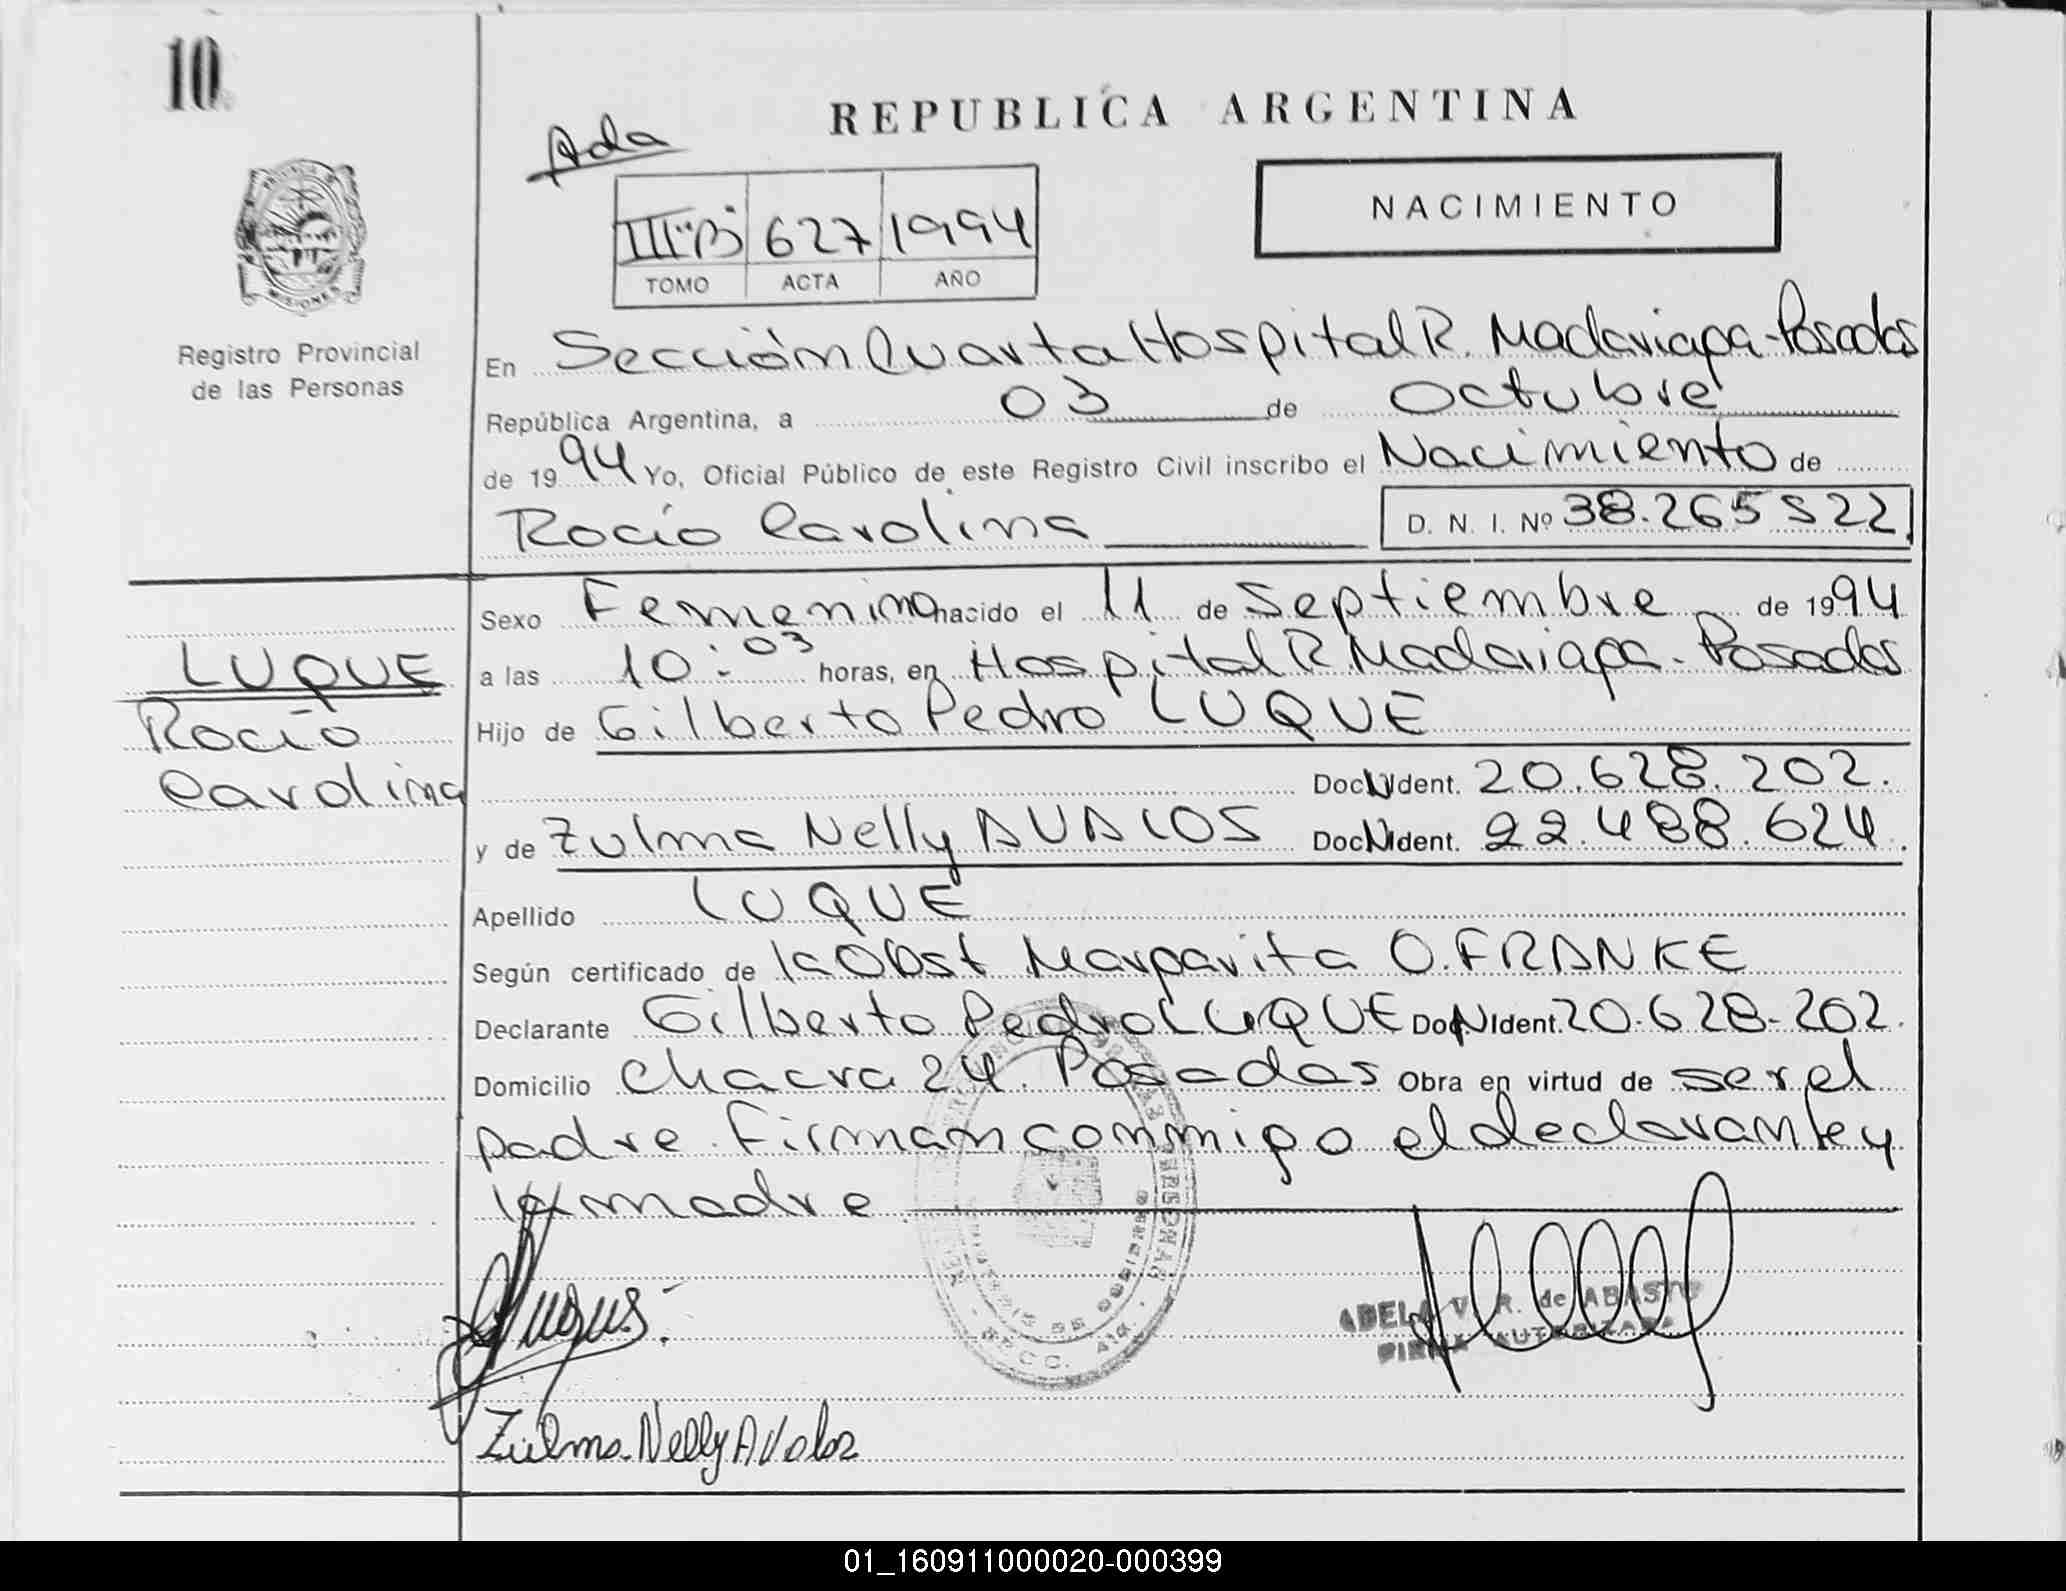 10
REPUBLICA ARGENTINA
Ada
III"B" 627 1994
TOMO ACTA AÑO
NACIMIENTO
MISIONES
Registro Provincial
de las Personas
En Sección Cuarta Hospital R. Madariaga - Posadas
República Argentina, a 03 de Octubre
de 1994 Yo, Oficial Público de este Registro Civil inscribo el Nacimiento de
Rocío Carolina D. N. I. Nº 38.265522
Sexo Femenino nacido el 11 de Septiembre de 1994
a las 10:03 horas, en Hospital R. Madariaga - Posadas
Hijo de Gilberto Pedro LUQUE
Doc. N Ident. 20.628.202.
y de Zulma Nelly AVALOS Doc. N Ident. 22.488.624.
Apellido LUQUE
LUQUE
Rocío
Carolina
Según certificado de la Obst Margarita O. FRANKE
Declarante Gilberto Pedro LUQUE Doc. N Ident. 20.628.202.
Domicilio Chacra 24. Posadas Obra en virtud de ser el
padre. Firman conmigo el declarante y
la madre
ADELA V. R. de ABASTO
FIRMA AUTORIZADA
Zulma Nelly Avalos
01_160911000020-000399